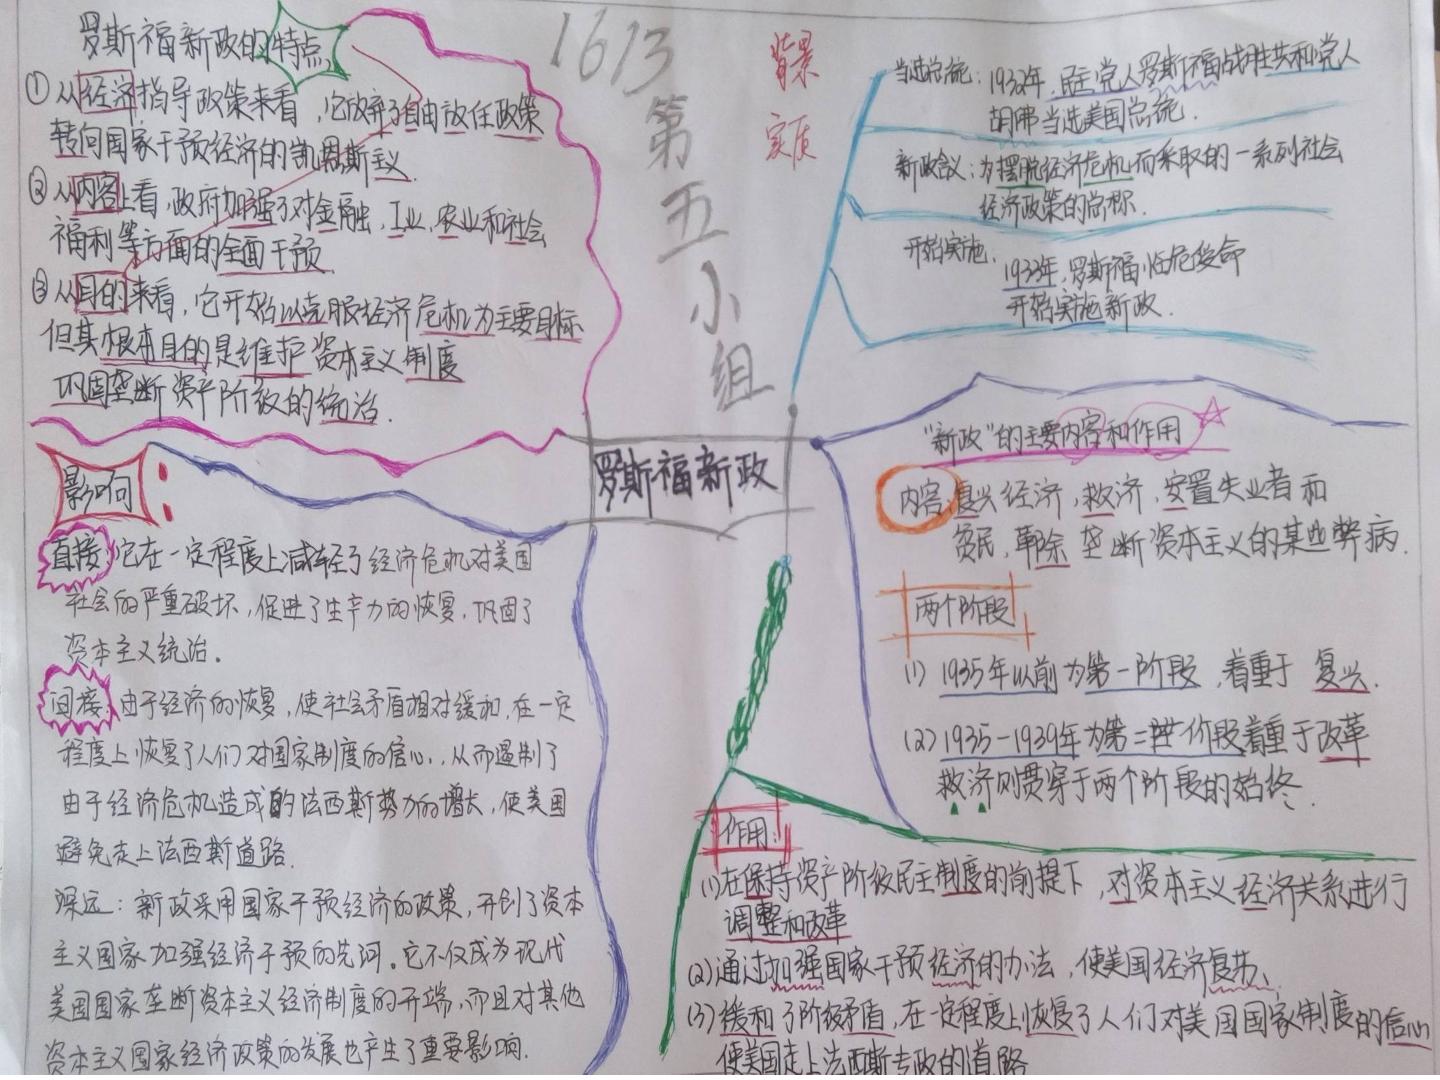 罗斯福新政的特点
①从经济指导政策来看，它放弃了自由放任政策
转向国家干预经济的凯恩斯主义.
②从内容上看,政府加强了对金融，工业,农业和社会
福利等方面的全面干预.
③从目的来看，它开始以克服经济危机为主要目标
但其根本目的是维护资本主义制度
巩固垄断资产阶级的统治.
1613
第五小组
背景
实质
当选总统：1932年,民主党人罗斯福战胜共和党人
胡佛当选美国总统.
新政含义：为摆脱经济危机而采取的一系列社会
经济政策的总称.
开始实施.
1933年,罗斯福临危受命
开始实施新政.
罗斯福新政
影响：
直接：它在一定程度上减轻了经济危机对美国
社会的严重破坏，促进了生产力的恢复，巩固了
资本主义统治。
间接：由于经济的恢复，使社会矛盾相对缓和,在一定
程度上恢复了人们对国家制度的信心，从而遏制了
由于经济危机造成的法西斯势力的增长，使美国
避免走上法西斯道路.
深远：新政采用国家干预经济的政策，开创了资本
主义国家加强经济干预的先河。它不仅成为现代
美国国家垄断资本主义经济制度的开端，而且对其他
资本主义国家经济政策的发展也产生了重要影响.
“新政”的主要内容和作用
内容:复兴经济，救济，安置失业者和
贫民，革除垄断资本主义的某些弊病.
两个阶段
(1) 1935年以前为第一阶段，着重于复兴.
(2) 1935-1939年为第二阶段着重于改革
救济则贯穿于两个阶段的始终.
作用
(1)在保持资产阶级民主制度的前提下，对资本主义经济关系进行
调整和改革
(2)通过加强国家干预经济的办法，使美国经济复苏、
(3)缓和了阶级矛盾，在一定程度上恢复了人们对美国国家制度的信心
使美国走上法西斯专政的道路